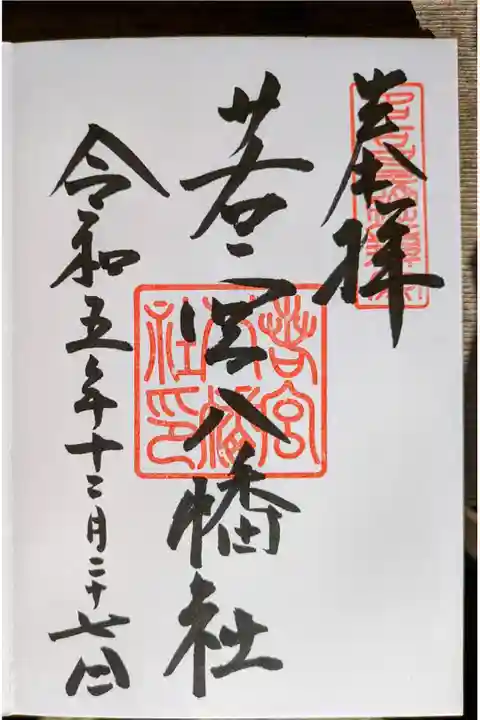 奉拝
若宮八幡社
令和五年十二月二十七日
若宮
八幡
社印